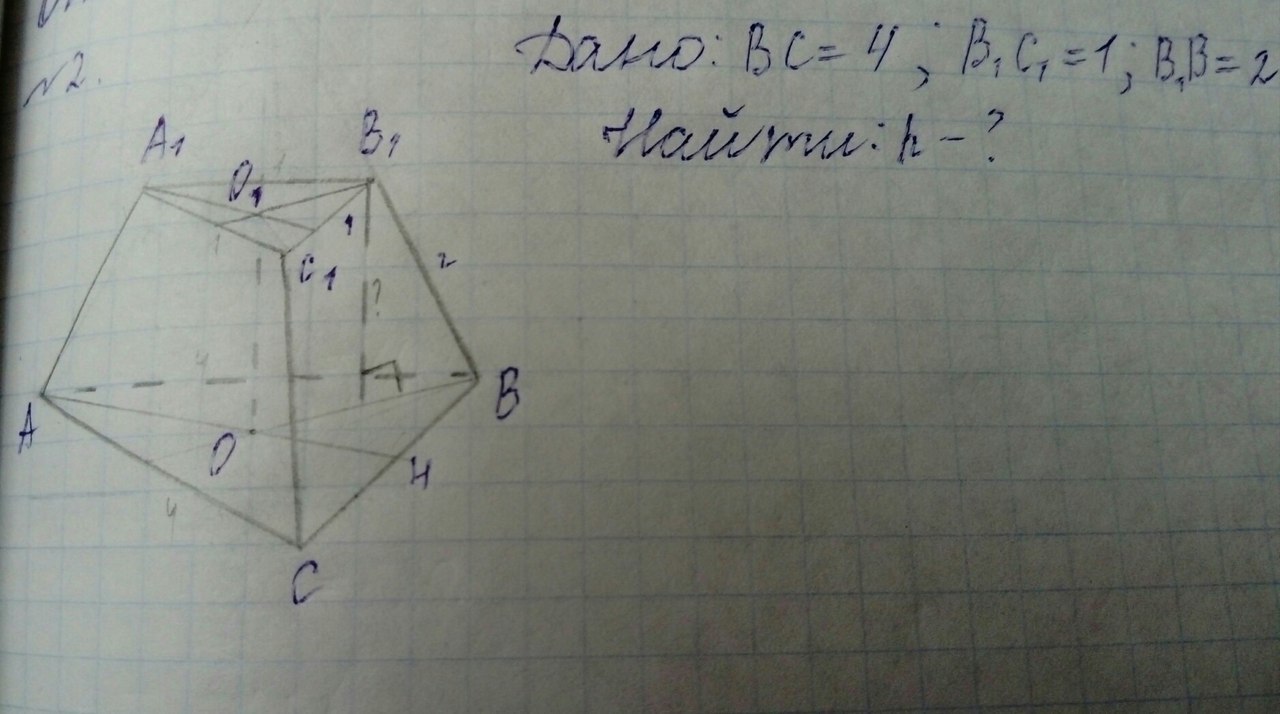 №2.
Дано: BC = 4; B₁C₁ = 1; B₁B = 2
Найти: h - ?
A₁
B₁
O₁
1
1
C₁
1
2
?
4
A
B
O
H
4
C